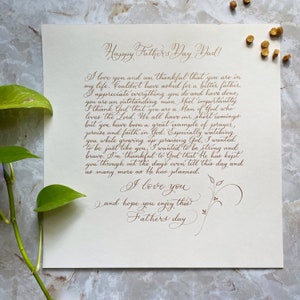 Happy Father's Day, Dad!
I love you and am thankful that you are in
my life. Couldn't have asked for a better father.
I appreciate everything you do and have done,
you are an outstanding man. Most importantly
I thank God that you are a Man of God who
loves the Lord. We all have our short comings
but you have been a great example of prayer,
praise and faith in God. Especially watching
you while growing up praising God, I wanted
to be just like you, I wanted to be strong and
brave. I'm thankful to God that He has kept
you through out the days even till this day and
as many more as He has planned.
I love you
and hope you enjoy this
Father's day